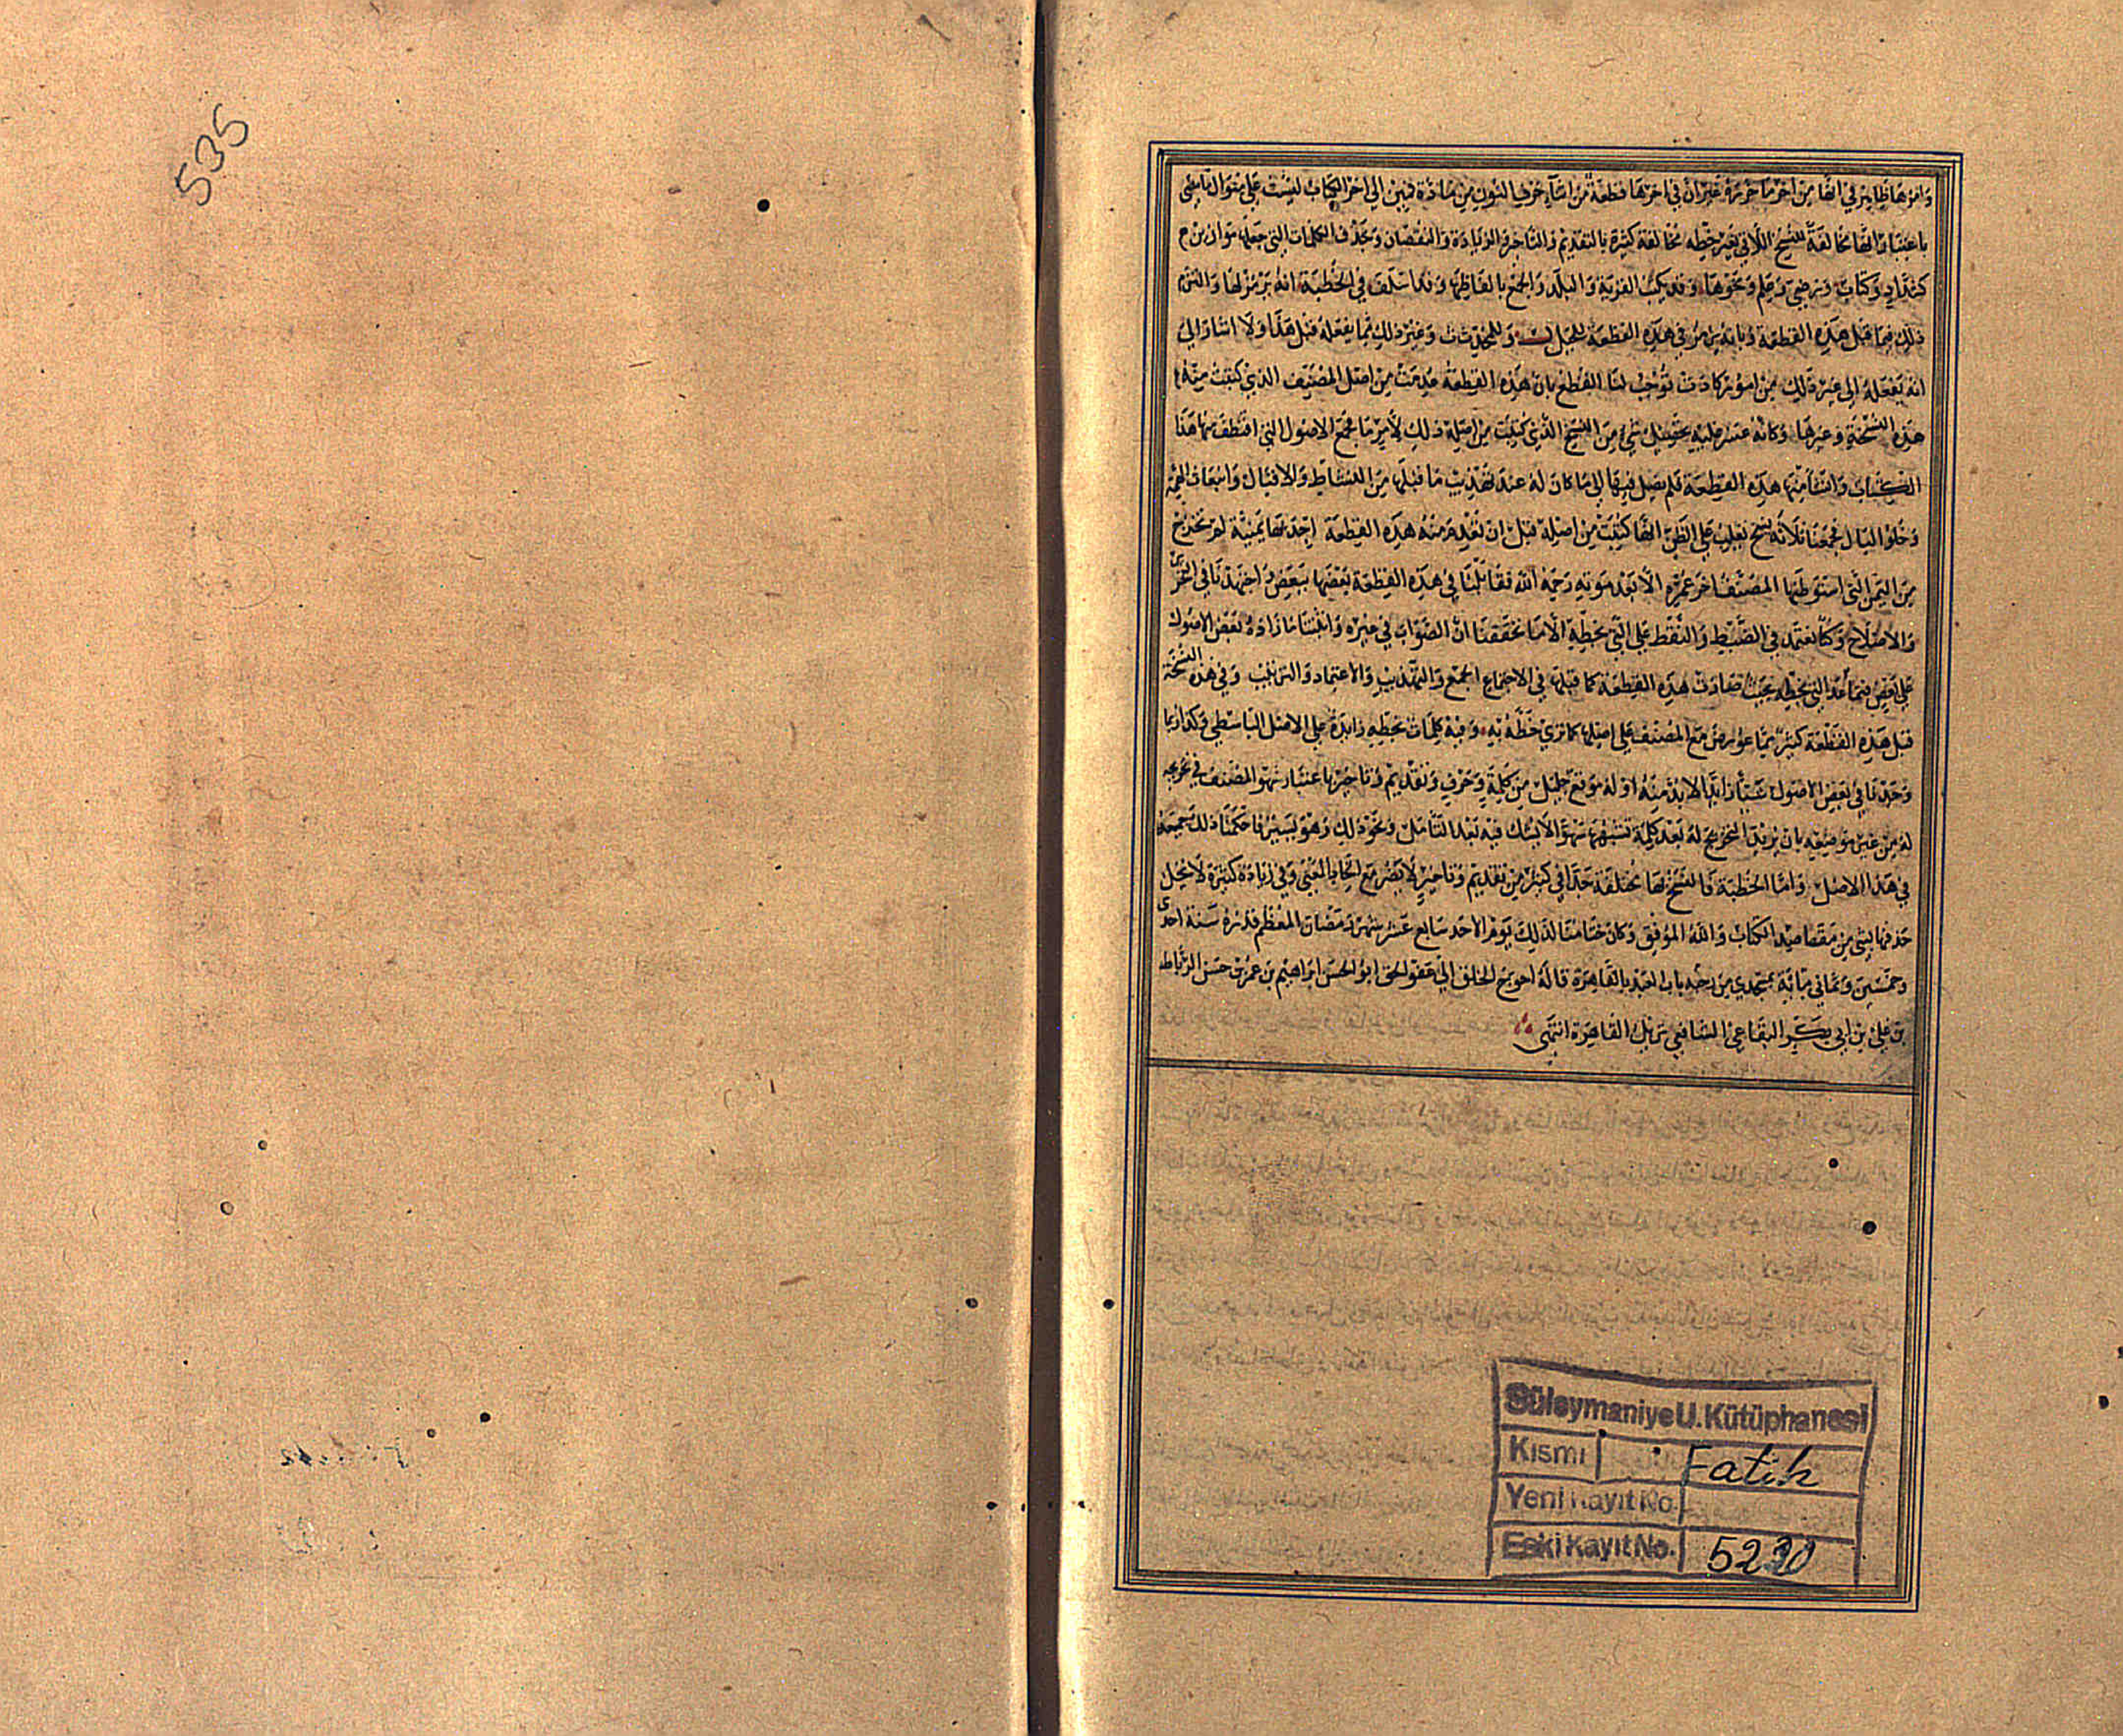 535
وامرها ظاهر في انها من اخر ما حرره غير ان في اخرها قطعة من اثناء حرف النون من مادة قين الى اخر الكتاب ليست على منوال باقيها
باعتبار انها مخالفة للنسخ اللاتي بغير خطه مخالفة كثيرة بالتقديم والتاخير والزيادة والنقصان وبحذف الكلمات التي جعلها موازين
كشداد وكتاب ورضي وعلم ونحوها وقد يكتب القرية والبلد والجمع بالفاظها وقد اسلف في الخطبة انه يرمز لها والتزم
ذلك فيما قبل هذه القطعة وبانه يرمز في هذه القطعة للجبل ل وللحديث ث وغير ذلك مما يفعله قبل هذا ولا اشار الى
انه يفعله الى غير ذلك من امور كادت توجب لنا القطع بان هذه القطعة عدمت من اصل المصنف الذي كتبت منه
هذه النسخة وغيرها وكانه عسر عليه تحصيل شيء من النسخ الذي كتبت من اصله ذلك لامر ما فجمع الاصول التي اقتطف منها هذا
الكتاب وانشا منها هذه القطعة فلم يصل فيها الى ما كان له عند تهذيب ما قبلها من النشاط والاقبال واسعاف الهمة
وخلو البال فجمعنا ثلاثة نسخ يغلب على الظن انها كتبت من اصله قبل ان تعدم منه هذه القطعة احدها يمنية لم تخرج
من اليمن التي استوطنها المصنف اخر عمره الا بعد موته رحمه الله فقابلنا في هذه القطعة بعضها ببعض واجتهدنا في التحري
والاصلاح وكنا نعتمد في الضبط والنقط على التي بخطه الا ما تحققنا ان الصواب في غيره واثبتنا ما زاده بعض الاصول
على بعض فيما عدا التي بخطه بحيث صارت هذه القطعة كما قبلها في الاجتماع الجمع والتهذيب والاعتماد والترتيب وفي هذه النسخة
قبل هذه القطعة كثير مما عورض مع المصنف على اصلها كما ترى خطه به وفيه كلمات بخطه زايدة على الاصل الباسطي وكذا ربما
وجدنا في بعض الاصول شيئا زايدا لا بد منه او له موقع جليل من كلمة وحرف وتقديم وتاخير باعتبار سهو المصنف في تخريجه
له من غير موضعه بان يريد التخريج له بعد كلمة تشبهها سهوا لا يشك فيه بعد التامل ونحو ذلك وهو يسير فاحكمنا ذلك جميعه
في هذا الاصل واما الخطبة فالنسخ بها مختلفة جدا في كثير من تقديم وتاخير لا يضر مع اتحاد المعنى وفي زيادة كثيرة لا يخل
حذفها بشي من مقاصد الكتاب والله الموفق وكان ختامنا لذلك يوم الاحد سابع عشر شهر رمضان المعظم قدره سنة احدى
وخمسين وثماني مائة بمسجدي من رحبة باب العيد بالقاهرة قاله احوج الخلق الى عفو الحق ابو الحسن ابراهيم بن عمر بن حسن الرباط
بن علي بن ابي بكر البقاعي الشافعي نزيل القاهرة انتهى
Süleymaniye U. Kütüphanesi
Kısmı Fatih
Yeni Kayıt No.
Eski Kayıt No. 5230